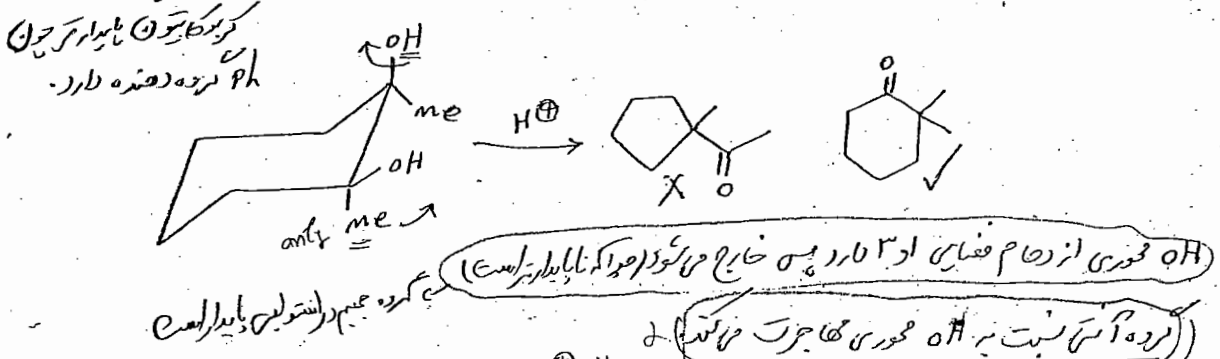 کربوکاتیون پایدارتر چون
Ph گروه دهنده دارد.
OH
Me
OH
anti Me
H⊕
O
O
X ✓
OH محوری ازدحام فضایی ۱و۳ دارد پس خارج می‌شود (چرا که ناپایدارتر است)
گروه حجیم در استوایی پایدار است
(گروه آنتی نسبت به OH محوری مهاجرت می‌کند)